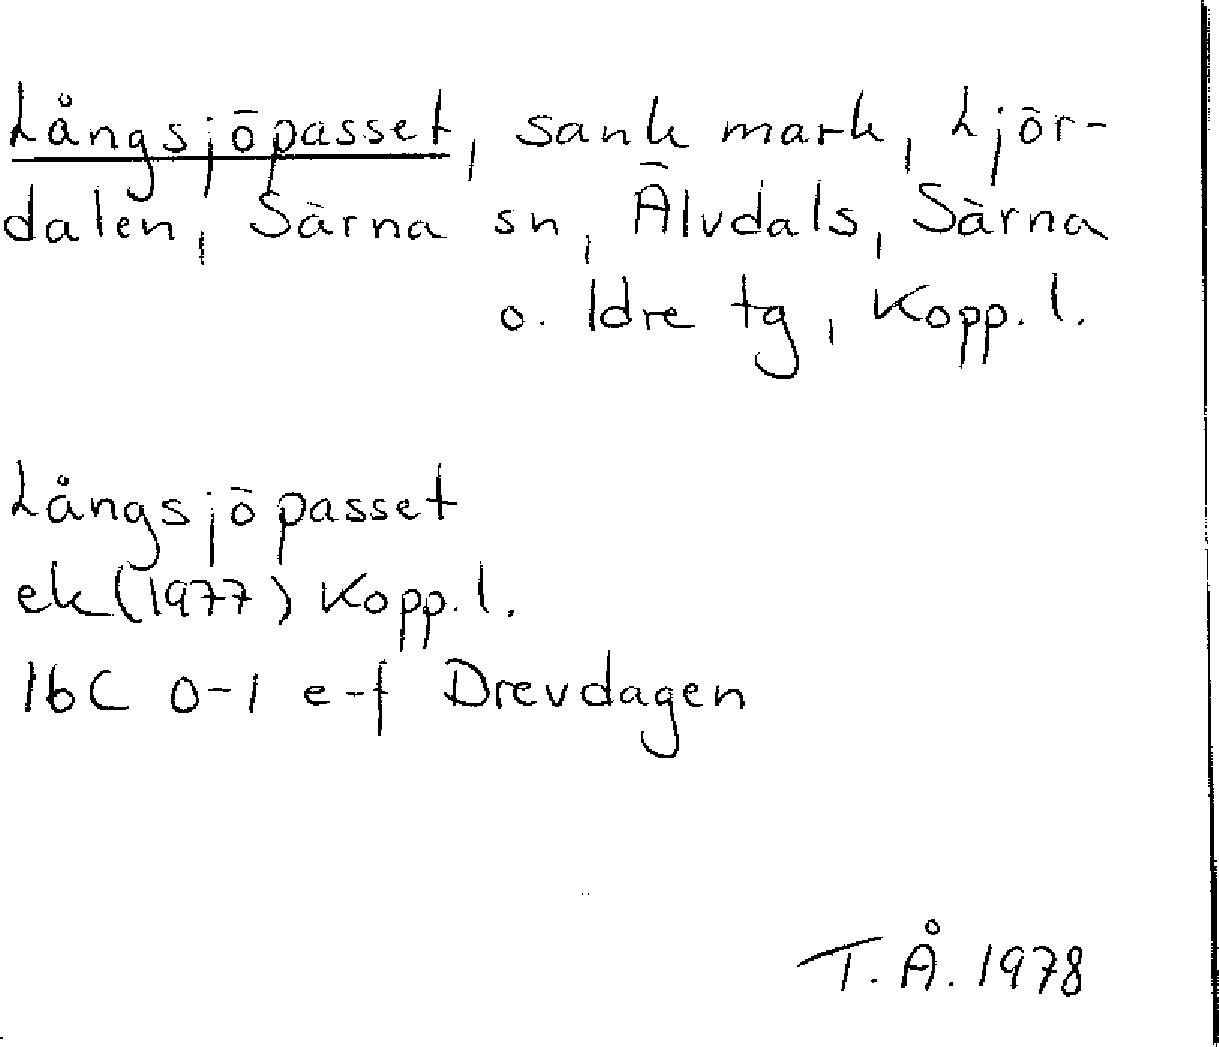 Långsjöpasset, sank mark, Ljör-
dalen, Särna sn, Älvdals, Särna
o. Idre tg, Kopp. l.
Långsjöpasset
ek (1977) Kopp. l.
16C 0-1 e-f Drevdagen
T. Å. 1978